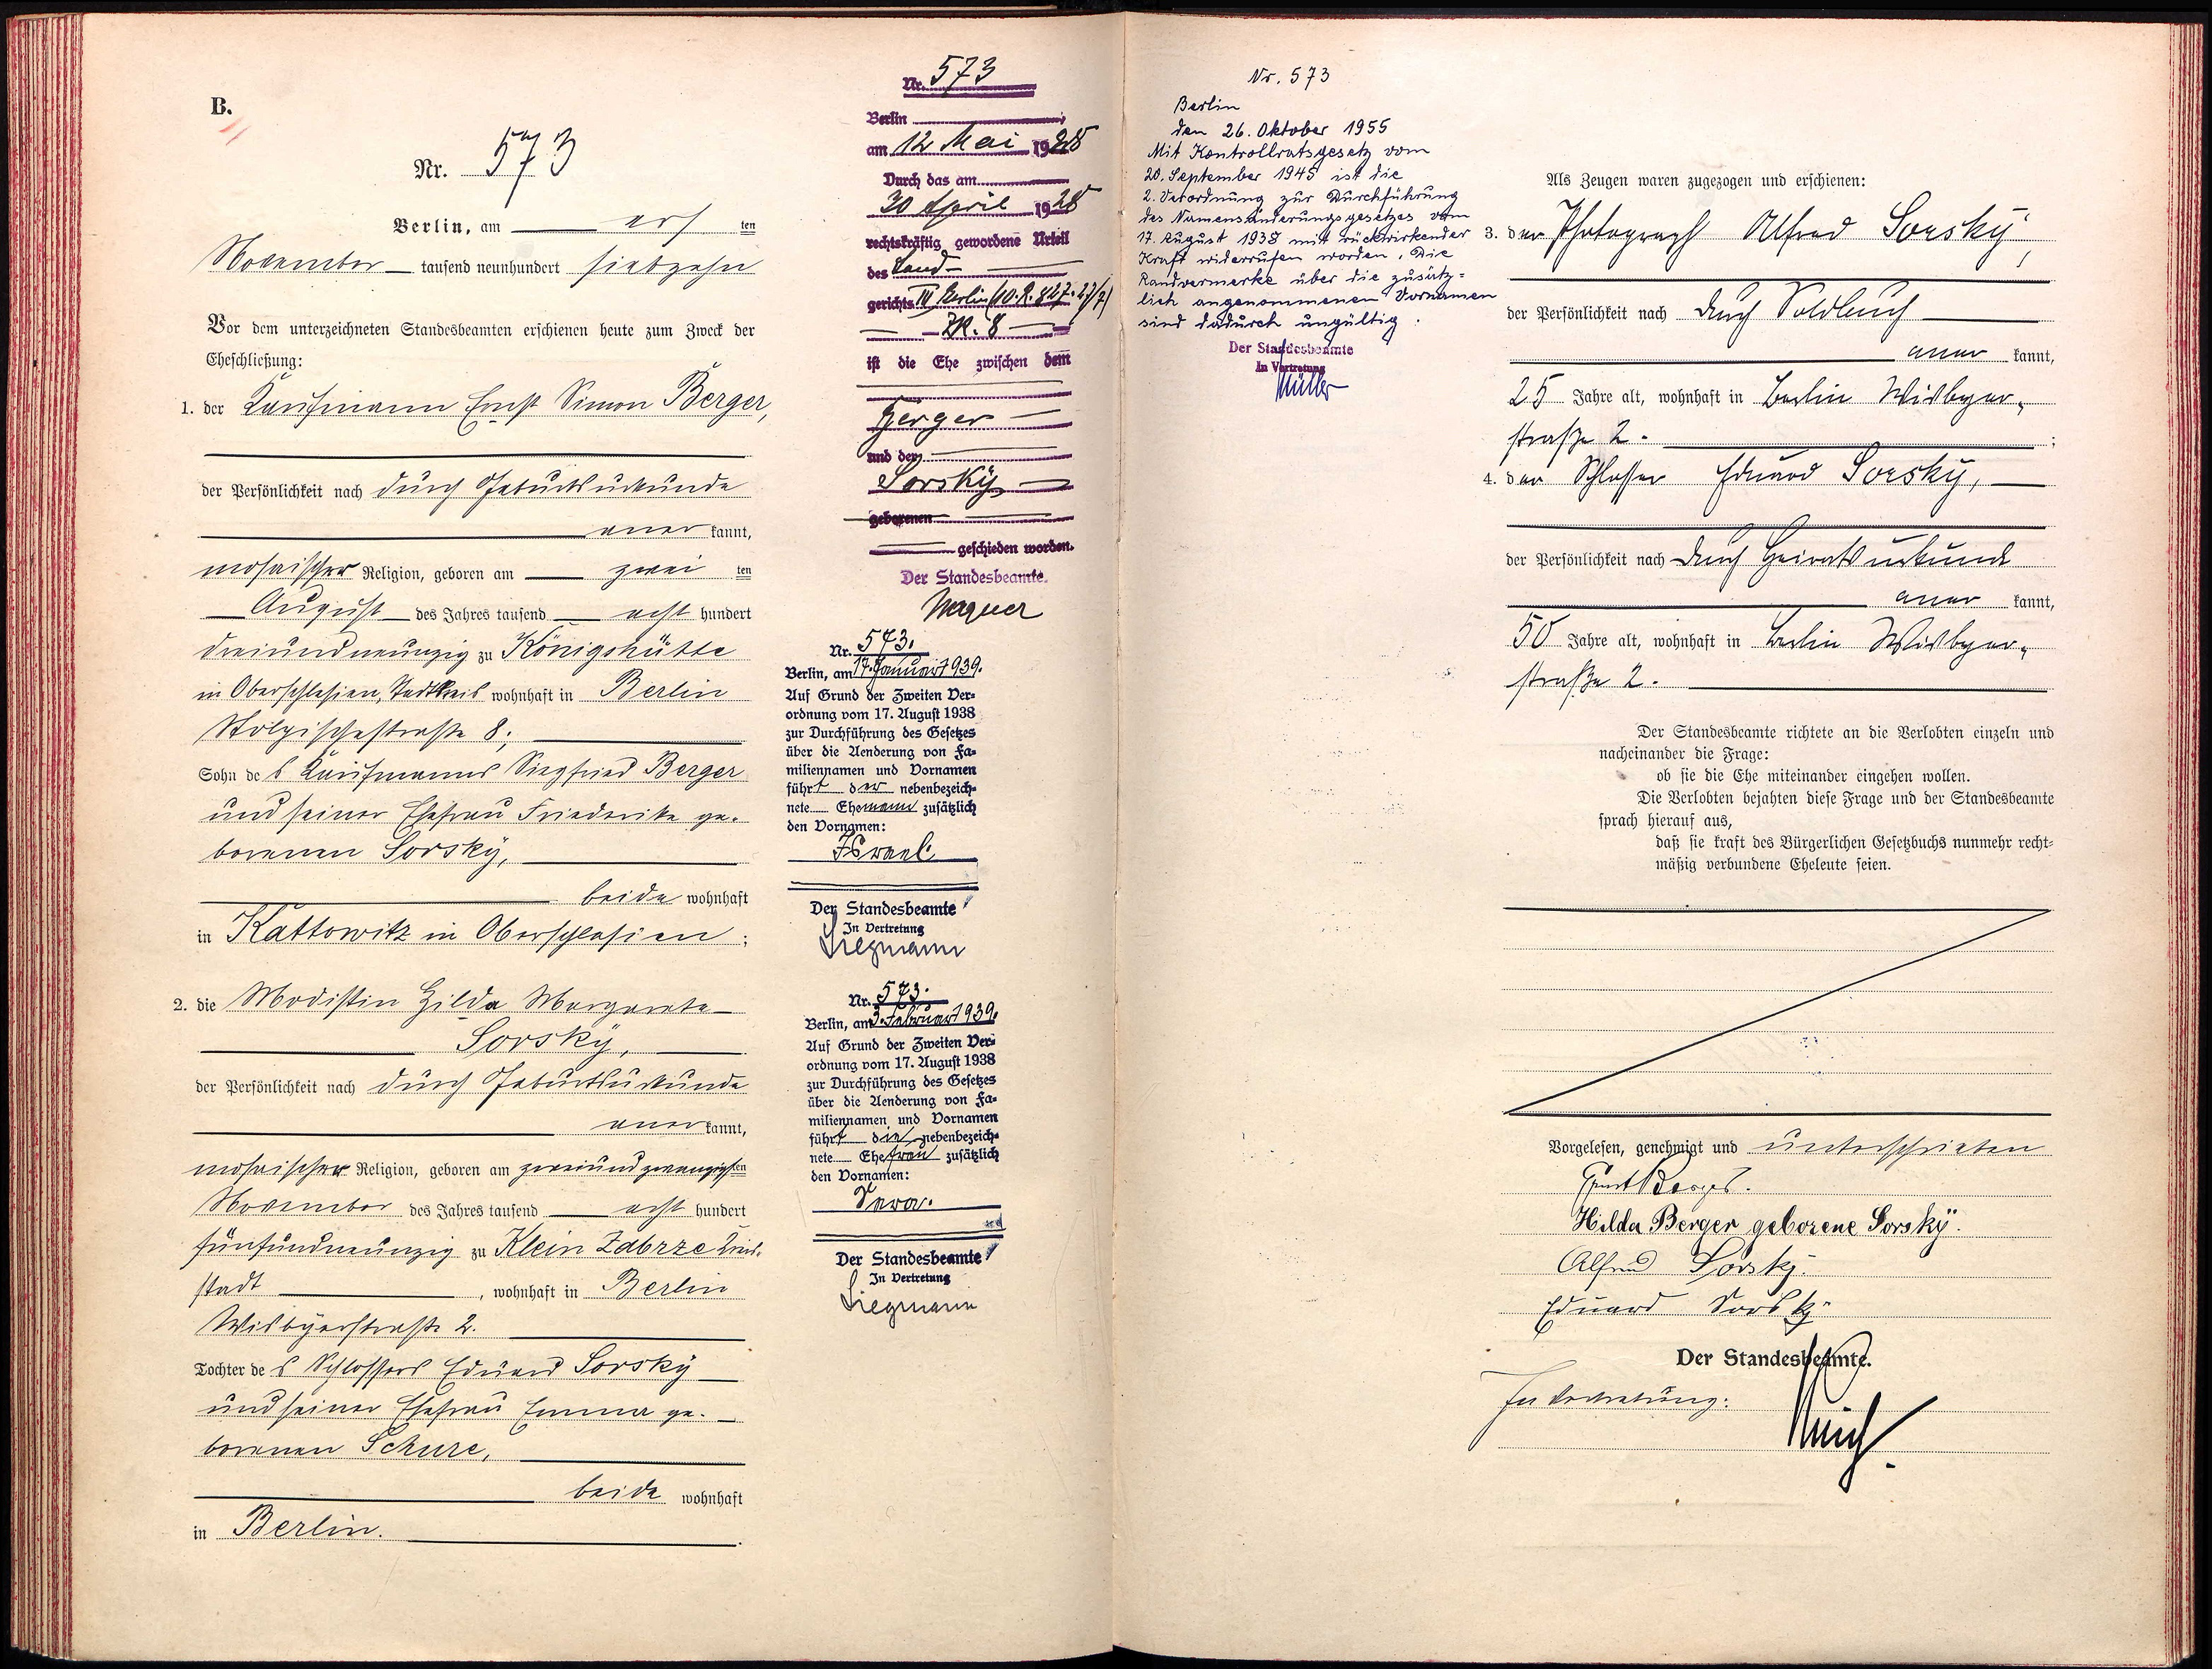 B.
Nr. 573
Berlin, am acht ten
November tausend neunhundert siebzehn
Vor dem unterzeichneten Standesbeamten erschienen heute zum Zweck der
Eheschließung:
1. der Kaufmann Ernst Simon Berger,
der Persönlichkeit nach durch Geburtsurkunde
aner kannt,
mosaischer Religion, geboren am zwei ten
August des Jahres tausend acht hundert
dreiundneunzig zu Königshütte
in Oberschlesien, Stadtkreis wohnhaft in Berlin
Stolpischestraße 8;
Sohn des Kaufmanns Siegfried Berger
und seiner Ehefrau Friederike ge-
borenen Sorsky,
beide wohnhaft
in Kattowitz in Oberschlesien;
2. die Modistin Hilda Margarete
Sorsky,
der Persönlichkeit nach durch Geburtsurkunde
aner kannt,
mosaischer Religion, geboren am zweiundzwanzigsten
November des Jahres tausend acht hundert
fünfundneunzig zu Klein Zabrze
stadt, wohnhaft in Berlin
Wisbyerstraße 2.
Tochter des Schlossers Eduard Sorsky
und seiner Ehefrau Emma ge-
borenen Schure,
beide wohnhaft
in Berlin.
Nr. 573
Berlin
am 12 Mai 1928
Durch das am
30 April 1928
rechtskräftig gewordene Urteil
des Land-
gerichts III Berlin (10.R.827.27/7)
ZK. 8
ist die Ehe zwischen dem
Berger
und der
Sorsky
geborenen
geschieden worden.
Der Standesbeamte.
Wagner
Nr. 573.
Berlin, am 17. Januar 1939.
Auf Grund der Zweiten Ver-
ordnung vom 17. August 1938
zur Durchführung des Gesetzes
über die Aenderung von Fa-
miliennamen und Vornamen
führt der nebenbezeich-
nete Ehemann zusätzlich
den Vornamen:
Israel.
Der Standesbeamte
In Vertretung
Siegmann
Nr. 573.
Berlin, am 3. Februar 1939.
Auf Grund der Zweiten Ver-
ordnung vom 17. August 1938
zur Durchführung des Gesetzes
über die Aenderung von Fa-
miliennamen und Vornamen
führt die nebenbezeich-
nete Ehefrau zusätzlich
den Vornamen:
Sara.
Der Standesbeamte
In Vertretung
Siegmann
Nr. 573
Berlin
den 26. Oktober 1955
Mit Kontrollratsgesetz vom
20. September 1945 ist die
2. Verordnung zur Durchführung
des Namensänderungsgesetzes vom
17. August 1938 mit rückwirkender
Kraft widerrufen worden. Die
Randvermerke über die zusätz-
lich angenommenen Vornamen
sind dadurch ungültig.
Der Standesbeamte
In Vertretung
Müller
Als Zeugen waren zugezogen und erschienen:
3. der Photograph Alfred Sorsky,
der Persönlichkeit nach durch Soldbuch
aner kannt,
25 Jahre alt, wohnhaft in Berlin Wisbyer-
straße 2.;
4. der Schlosser Eduard Sorsky,
der Persönlichkeit nach durch Heiratsurkunde
aner kannt,
50 Jahre alt, wohnhaft in Berlin Wisbyer-
straße 2.
Der Standesbeamte richtete an die Verlobten einzeln und
nacheinander die Frage:
ob sie die Ehe miteinander eingehen wollen.
Die Verlobten bejahten diese Frage und der Standesbeamte
sprach hierauf aus,
daß sie kraft des Bürgerlichen Gesetzbuchs nunmehr recht-
mäßig verbundene Eheleute seien.
Vorgelesen, genehmigt und unterschrieben
Ernst Berger.
Hilda Berger geborene Sorsky.
Alfred Sorsky.
Eduard Sorsky
Der Standesbeamte.
In Vertretung: